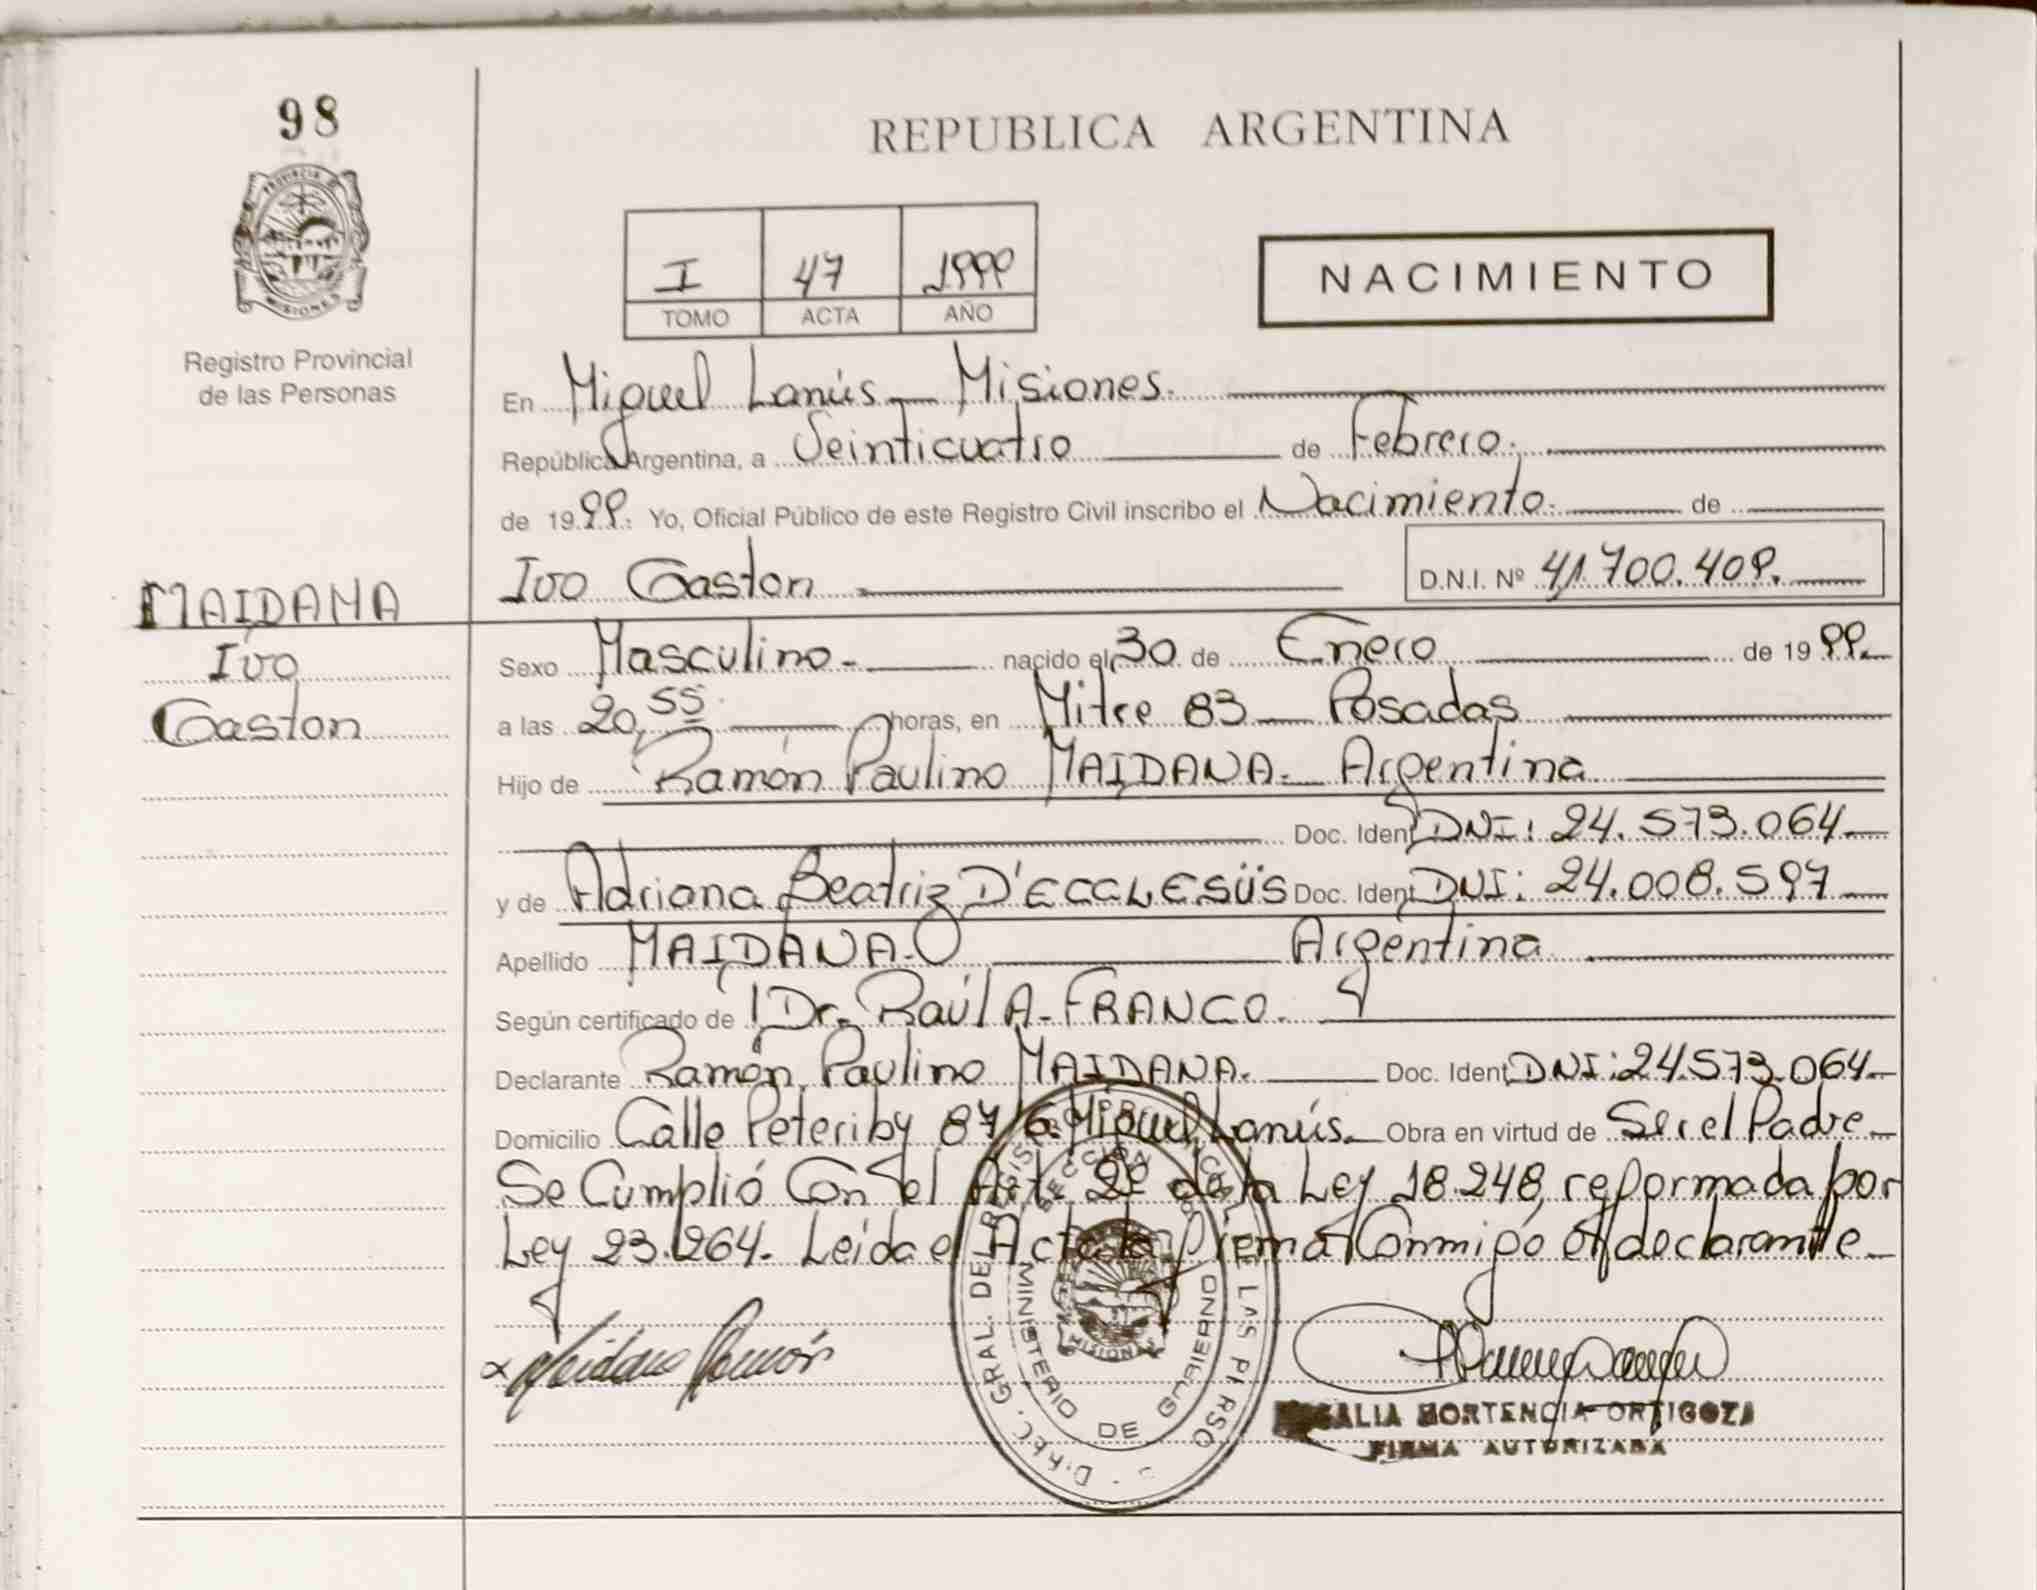 98
PROVINCIA DE
MISIONES
Registro Provincial
de las Personas
REPUBLICA ARGENTINA
I 47 1999
TOMO ACTA AÑO
NACIMIENTO
En Miguel Lanús - Misiones.
República Argentina, a Veinticuatro de Febrero.
de 1999. Yo, Oficial Público de este Registro Civil inscribo el Nacimiento. de
Ivo Gaston D.N.I. Nº 41.700.409.
MAIDANA
Ivo
Gaston
Sexo Masculino - nacido el 30 de Enero de 1999.
a las 20,55 horas, en Mitre 83 - Posadas
Hijo de Ramón Paulino MAIDANA - Argentina
Doc. Ident DNI: 24.573.064
y de Adriana Beatriz D'ECCLESÜS Doc. Ident DNI: 24.008.597
Apellido MAIDANA. Argentina
Según certificado de Dr. Raúl A. FRANCO.
Declarante Ramón Paulino MAIDANA. Doc. Ident DNI: 24.573.064
Domicilio Calle Peteriby 87 Miguel Lanús. Obra en virtud de Ser el Padre
Se Cumplió Con el Art. 2º de la Ley 18.248, reformada por
Ley 23.264. Leída el Acta la Firma Conmigo el declarante
Maidana Ramón
DIREC. GRAL. DEL REGISTRO PROVINCIAL DE LAS PERSO
SECCION
MINISTERIO DE GOBIERNO
MISIONES
HORTENCIA ORTIGOZA
FIRMA AUTORIZADA